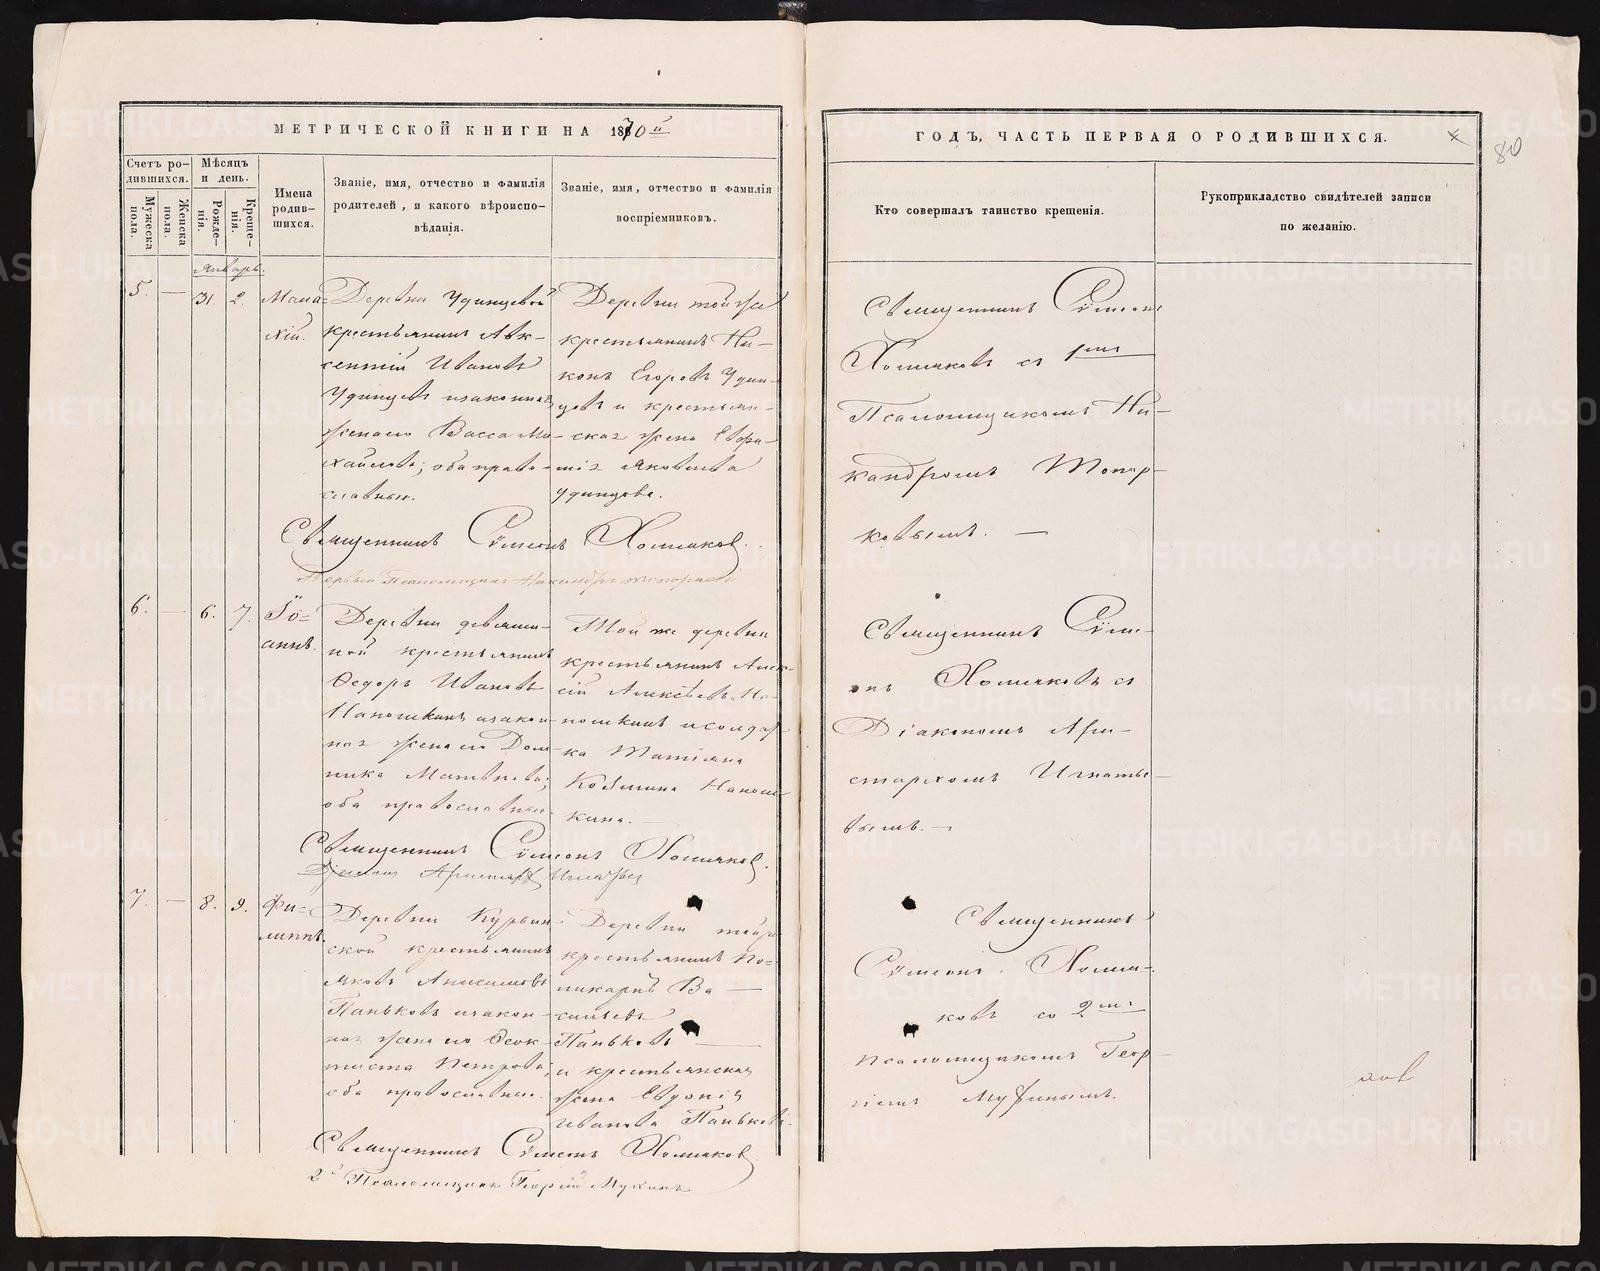 МЕТРИЧЕСКОЙ КНИГИ НА 1870й
ГОДЪ, ЧАСТЬ ПЕРВАЯ О РОДИВШИХСЯ.
80
Счетъ ро-
дившихся.
Мужеска
пола.
Женска
пола.
Мѣсяцъ
и день.
Рожде-
нія.
Креще-
нія.
Имена
родив-
шихся.
Званіе, имя, отчество и фамилія
родителей, и какого вѣроиспо-
вѣданія.
Званіе, имя, отчество и фамилія
воспріемниковъ.
Кто совершалъ таинство крещенія.
Рукоприкладство свидѣтелей записи
по желанію.
Январь.
5. — 31. 2.
Мала=
хій.
Деревни Удинцевой
крестьянинъ Авк-
сентій Ивановъ
Удинцевъ и законная
жена его Васса Ми-
хайлова; оба право-
славные.
Деревни той же
крестьянинъ Ни-
конъ Егоровъ Удин-
цовъ и крестьян-
ская жена Евфи-
мія Яковлева
Удинцова.
Священникъ Сѵмеонъ
Хомяковъ съ 1мъ
Псаломщикомъ Ни-
кандромъ Топор-
ковымъ. —
Священникъ Сѵмеонъ Хомяковъ.
Первый Псаломщикъ Никандръ Топорковъ
6. — 6. 7.
Іо=
аннъ.
Деревни девяши-
ной крестьянинъ
Ѳедоръ Ивановъ
Паношкинъ и закон-
ная жена его Дом-
ника Матвѣева;
оба православные.
Той же деревни
крестьянинъ Алек-
сій Алексѣевъ Па-
ношкинъ и солдат-
ка Татіяна
Козмина Паnош-
кина. —
Священникъ Сѵме-
онъ Хомяковъ съ
Діакономъ Ари-
стархомъ Игнатье-
вымъ. —
Священникъ Сѵмеонъ Хомяковъ.
Діаконъ Аристархъ Игнатьев
7. — 8. 9.
Фи=
липпъ.
Деревни Курьин-
ской крестьянинъ
Яковъ Анисимовъ
Паньковъ и закон-
ная жена его Ѳеок-
тиста Петрова;
оба православные.
Деревни той же
крестьянинъ По=
ликарпъ Ва —
сильевъ
Паньковъ —
и крестьянская
жена Евдокія
Иванова Панькова.
Священникъ
Сѵмеонъ Хомя-
ковъ со 2мъ
псаломщикомъ Геор-
гіемъ Мухинымъ.
Священникъ Сѵмеонъ Хомяковъ.
2й Псаломщикъ Георгій Мухинъ